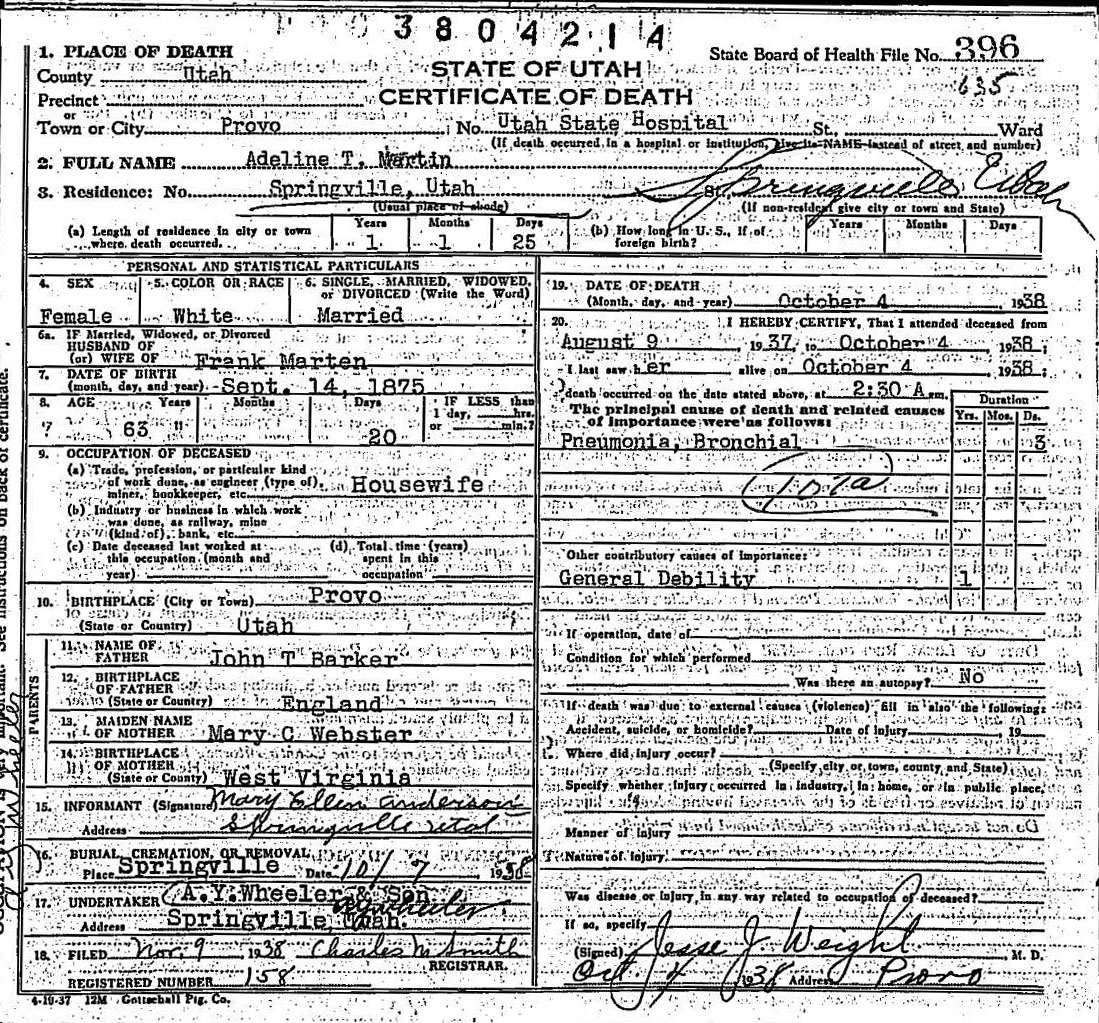 3804214
1. PLACE OF DEATH
State Board of Health File No. 396
County Utah
STATE OF UTAH
635
Precinct
CERTIFICATE OF DEATH
or
Town or City Provo No. Utah State Hospital St., Ward
(If death occurred in a hospital or institution, give its NAME instead of street and number)
2. FULL NAME Adeline T. Martin
3. Residence: No. Springville, Utah St. Springville Utah
(Usual place of abode) (If non-resident give city or town and State)
(a) Length of residence in city or town where death occurred. Years 1 Months 1 Days 25
(b) How long in U. S., if of foreign birth? Years Months Days
PERSONAL AND STATISTICAL PARTICULARS
4. SEX Female
5. COLOR OR RACE White
6. SINGLE, MARRIED, WIDOWED, or DIVORCED (Write the Word) Married
6a. IF Married, Widowed, or Divorced
HUSBAND OF
(or) WIFE OF Frank Marten
7. DATE OF BIRTH
(month, day, and year) Sept. 14, 1875
8. AGE Years 63 Months Days 20
IF LESS than 1 day, hrs. or min.?
9. OCCUPATION OF DECEASED
(a) Trade, profession, or particular kind
of work done, as engineer (type of),
miner, bookkeeper, etc. Housewife
(b) Industry or business in which work
was done, as railway, mine
(kind of), bank, etc.
(c) Date deceased last worked at
this occupation (month and
year)
(d) Total time (years)
spent in this
occupation
10. BIRTHPLACE (City or Town) Provo
(State or Country) Utah
PARENTS
11. NAME OF FATHER John T Barker
12. BIRTHPLACE OF FATHER
(State or Country) England
13. MAIDEN NAME OF MOTHER Mary C Webster
14. BIRTHPLACE OF MOTHER
(State or County) West Virginia
15. INFORMANT (Signature) Mary Ellen Anderson
Address Springville Utah
16. BURIAL, CREMATION, OR REMOVAL
Place Springville Date 10/7 1938
17. UNDERTAKER A.Y. Wheeler & Son
Address Springville, Utah.
18. FILED Nov. 9 1938 Charles M Smith
REGISTRAR.
REGISTERED NUMBER 158
4-19-37 12M Gottschall Ptg. Co.
19. DATE OF DEATH
(Month, day, and year) October 4 1938
20. I HEREBY CERTIFY, That I attended deceased from
August 9 1937, to October 4 1938;
I last saw her alive on October 4 1938;
death occurred on the date stated above, at 2:30 A m.
The principal cause of death and related causes
of importance were as follows:
Duration
Yrs. Mos. Ds.
Pneumonia, Bronchial 3
107a
Other contributory causes of importance:
General Debility 1
If operation, date of
Condition for which performed
Was there an autopsy? No
If death was due to external causes (violence) fill in also the following:
Accident, suicide, or homicide? Date of injury , 19
Where did injury occur?
(Specify city or town, county, and State)
Specify whether injury occurred in Industry, in home, or in public place,
Manner of injury
Nature of injury
Was disease or injury in any way related to occupation of deceased?
If so, specify
(Signed) Jesse J. Weight M. D.
Oct 4 1938 Address Provo
See instructions on back of certificate.